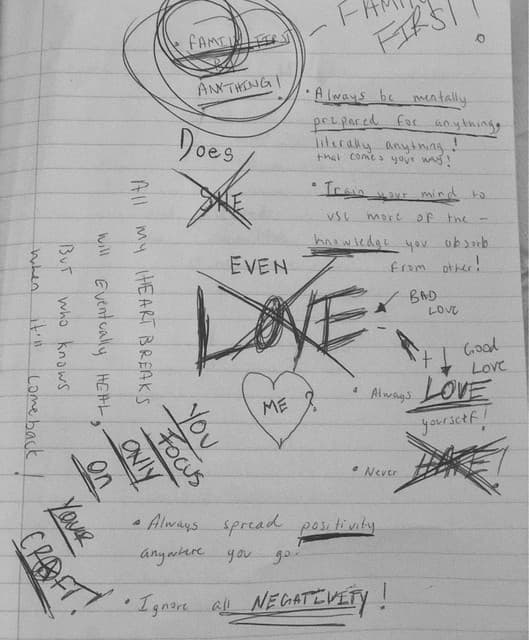 • FAMILY FIRST
ANYTHING!
- FAMILY
FIRST!
• Always be mentally
prepared for anything,
literally anything!
that comes your way!
• Train your mind to
use more of the -
knowledge you absorb
from other!
Does
SHE
EVEN
LOVE
ME?
BAD
LOVE
+ GOOD
LOVE
• Always LOVE
yourself!
• Never HATE!
All my HEARTBREAKS
will eventually HEAL,
But who knows
when it'll comeback!
YOU
FOCUS
ONLY
ON
YOUR
CRAFT!
• Always spread positivity
anywhere you go.
• Ignore all NEGATIVITY!